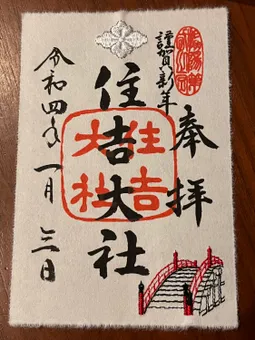 謹賀新年
奉拝
住吉大社
住吉
大社
令和四年一月三日